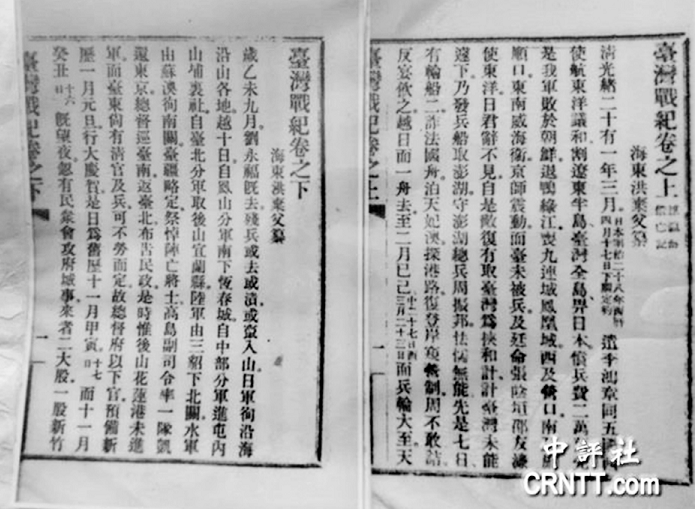 臺灣戰紀卷之上
海東洪棄父纂
清光緒二十有一年三月日本明治二十八年西曆四月十七日下關定約遣李鴻章同五國
使航東洋議和割遼東半島臺灣全島畀日本償兵費二萬
是我軍敗於朝鮮退鴨綠江喪九連城鳳凰城西及營口南
順口東南威海衛京師震動而臺未被兵及廷命張陰桓邵友濂
使東洋日君辭不見自是敵復有取臺灣為挾和計計臺灣未能
遽下乃發兵船取澎湖守澎湖總兵周振邦怯懦無能先是七日
有輪船二詐法國舟泊天妃澳探港路復登岸窺營制周不敢詰
反宴飲之越日而一舟去至二月己巳中二十七日西三月二十三日而兵輪大至天
臺灣戰紀卷之上
一
臺灣戰紀卷之下
海東洪棄父纂
歲乙未九月劉永福既去殘兵或去或潰或竄入山日軍徇沿海
沿山各地越十日自鳳山分軍南下恆春城自中部分軍進屯內
山埔裏社自臺北分軍取後山宜蘭縣陸軍由三貂下北關水軍
由蘇澳徇南關臺疆略定祭悼陣亡將士高島副司令率一隊凱
還東京總督巡臺南返臺北布告民政是時惟後山花蓮港未進
軍而臺東尚有清官及兵可不勞而定故總督府以下官預備新
歷一月元旦行大慶賀是日為舊歷十一月甲寅十七日而十一月
癸丑十六日既望夜忽有民眾會攻府城事來者二大股一股新竹
臺灣戰紀卷之下
一
中評社
CRNTT.com